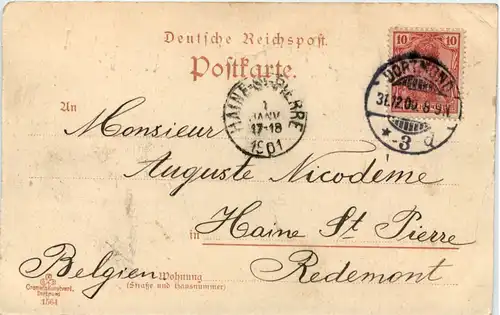 Deutsche Reichspost.
Postkarte.
10 10
DORTMUND
31.12.00. 8-9N.
* 3 d
HAINE-ST-PIERRE
1
JANV
17-18
1901
An
Monsieur
Auguste Nicodème
in Haine St Pierre
Belgien
Redemont
Wohnung
(Straße und Hausnummer)
Dortmund
1564